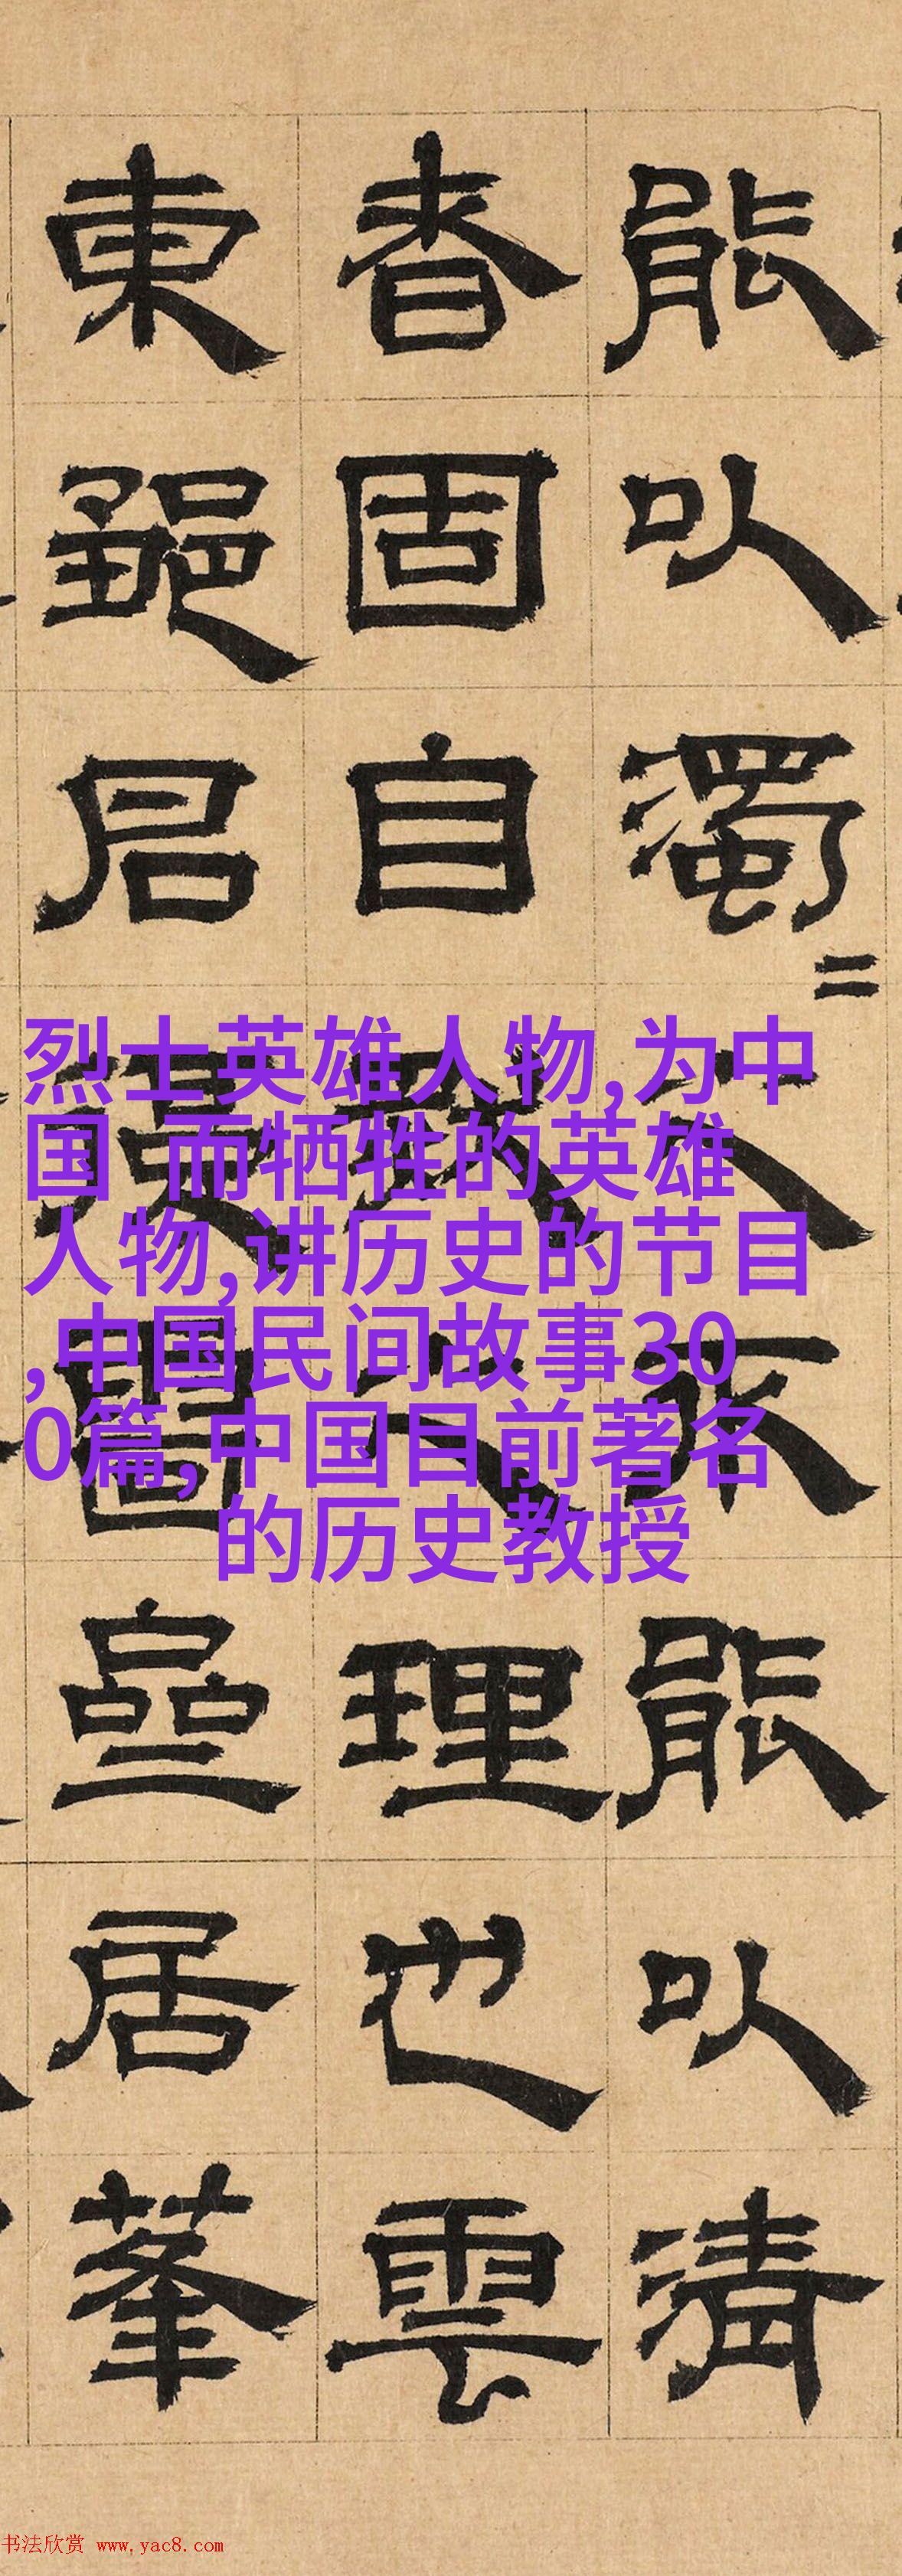 能以濁〻人不能以清
者固自人理也雲
東郵居
烈士英雄人物,为中
国 而牺牲的英雄
人物,讲历史的节目
,中国民间故事30
0篇,中国目前著名
的历史教授
书法欣赏 www.yac8.com